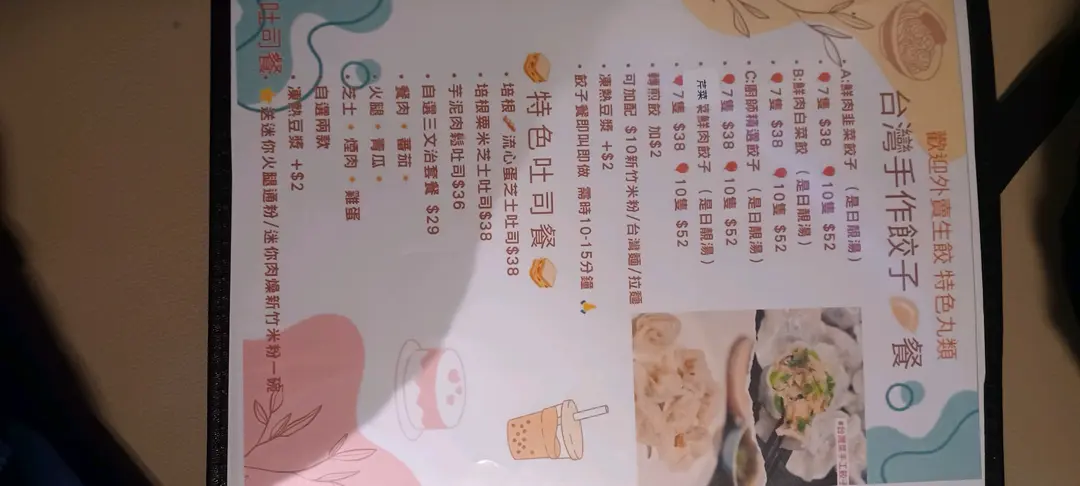 歡迎外賣生餃 特色丸類
台灣手作餃子 餐
A:鮮肉韮菜餃子 （是日靚湯）
7隻 $38 10隻 $52
B:鮮肉白菜餃 （是日靚湯）
7隻 $38 10隻 $52
C:廚師精選餃子 （是日靚湯）
7隻 $38 10隻 $52
芹菜菜鮮肉餃子 （是日靚湯）
7隻 $38 10隻 $52
轉煎餃 加$2
可加配 $10新竹米粉/台灣麵/拉麵
凍熱豆漿 +$2
餃子餐即叫即做 需時10-15分鐘
特色吐司餐
培根 流心蛋芝士吐司$38
培根粟米芝士吐司$38
芋泥肉鬆吐司$36
自選三文治套餐 $29
餐肉 蕃茄
火腿 青瓜
芝士 煙肉 雞蛋
自選兩款
凍熱豆漿 +$2
吐司餐: 送迷你火腿通粉/迷你肉燥新竹米粉一碗